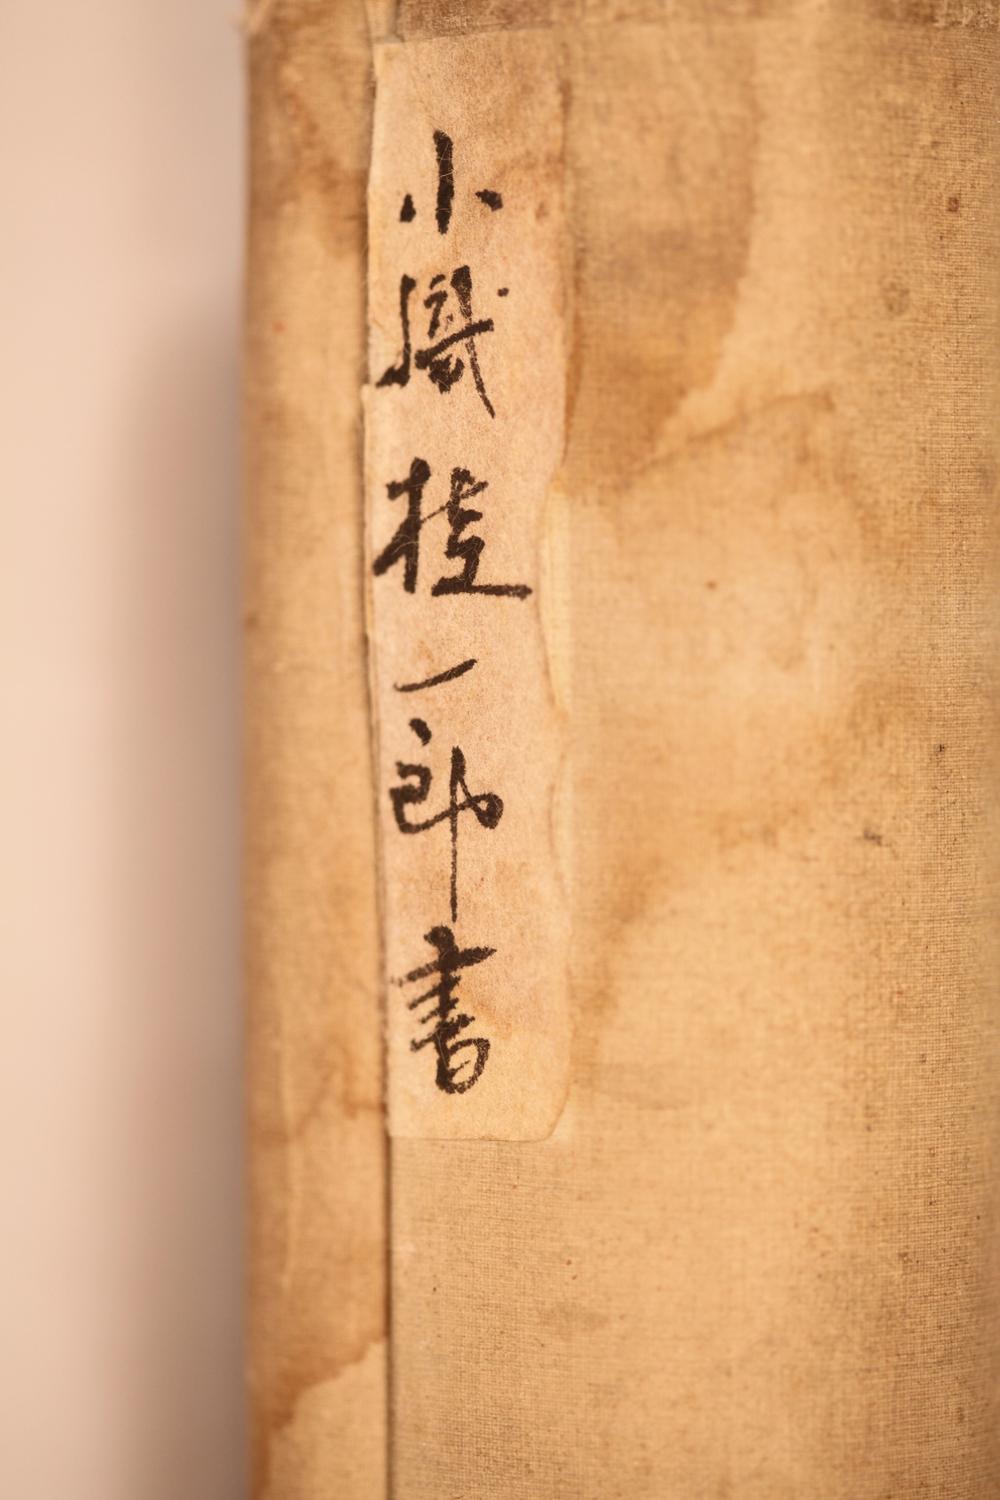 小鳳桂一郎書